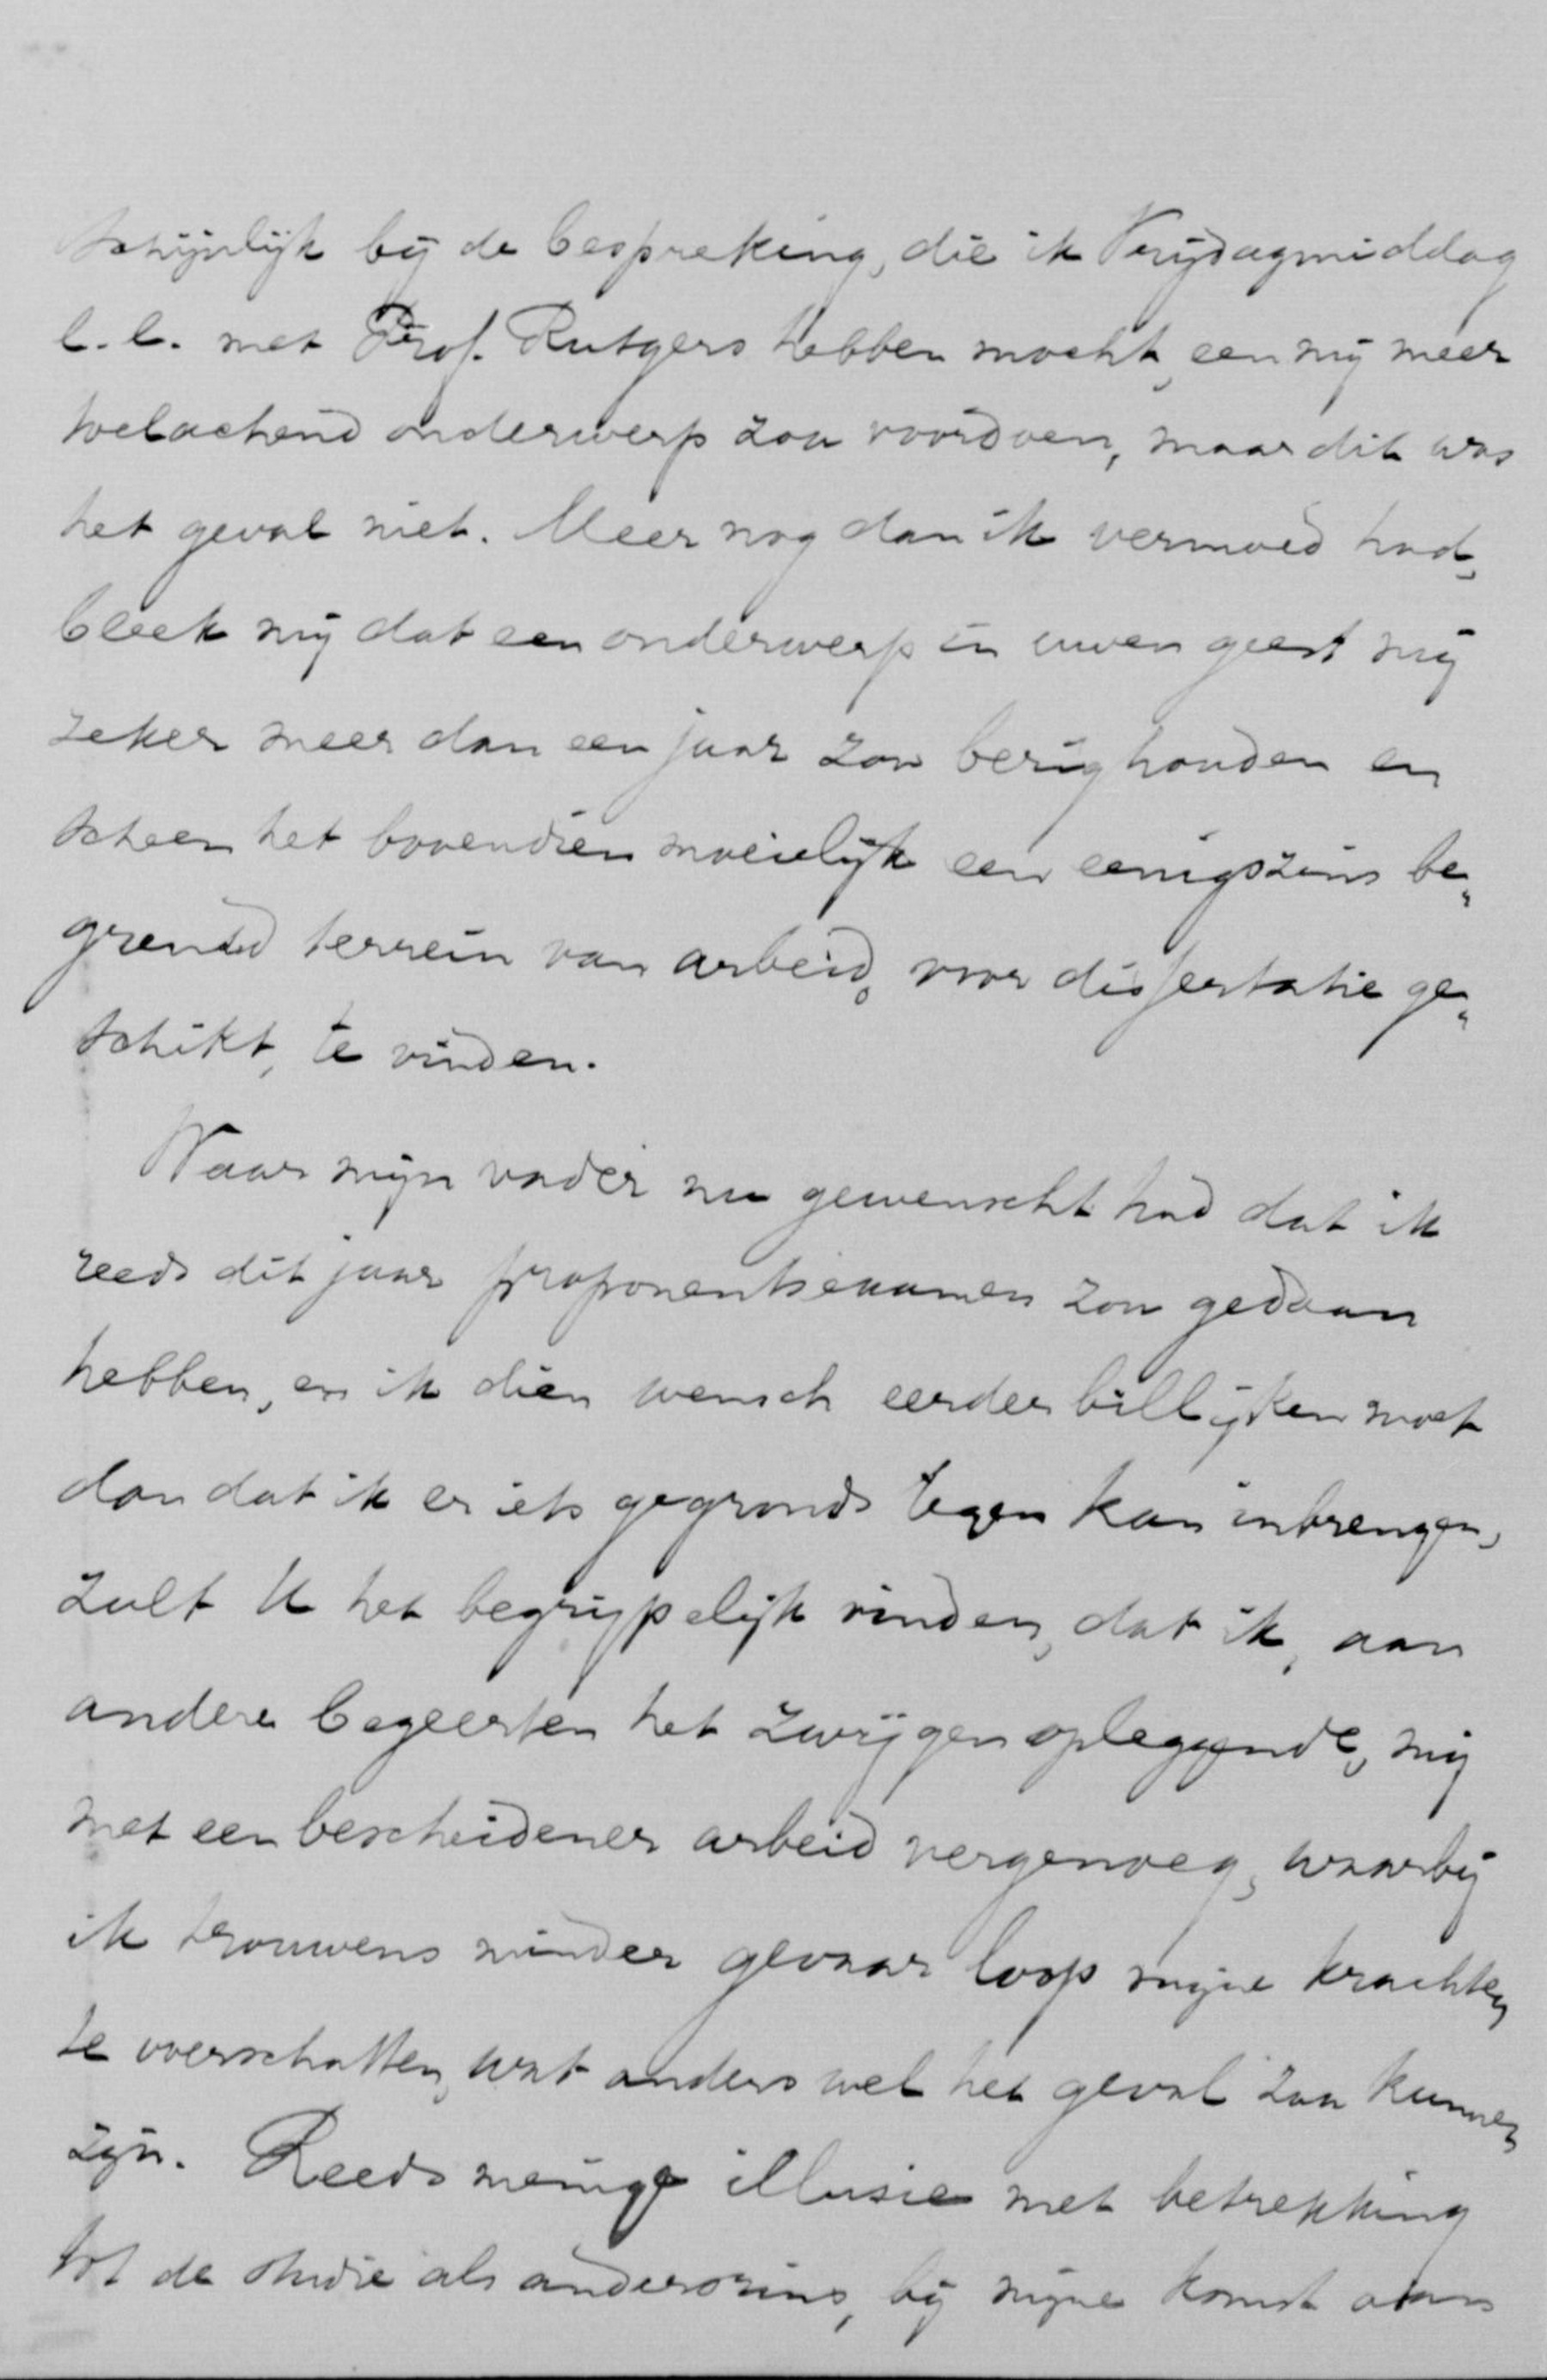 schijnlijk bij de bespreking, die ik Vrijdagmiddag
l.l. met Prof. Rutgers hebben mocht, een mij meer
toelachend onderwerp zou voordoen, maar dit was
het geval niet. Meer nog dan ik vermoed had,
bleek mij dat een onderwerp in uwen geest mij
zeker meer dan een jaar zou bezig houden en
scheen het bovendien moeielijk een eenigszins be„
grensd terrein van arbeid, voor dissertatie ge„
schikt, te vinden.
Waar mijn vader nu gewenscht had dat ik
reeds dit jaar proponentsexamen zou gedaan
hebben, en ik dien wensch eerder billijken moet
dan dat ik er iets gegronds tegen kan inbrengen,
zult U het begrijpelijk vinden, dat ik, aan
andere begeerten het zwijgen opleggende, mij
met een bescheidener arbeid vergenoeg, waarbij
ik trouwens minder gevaar loop mijne krachten
te overschatten, wat anders wel het geval zou kunnen
zijn. Reeds menige illusie met betrekking
tot de studie als anderszins, bij mijne komst aan